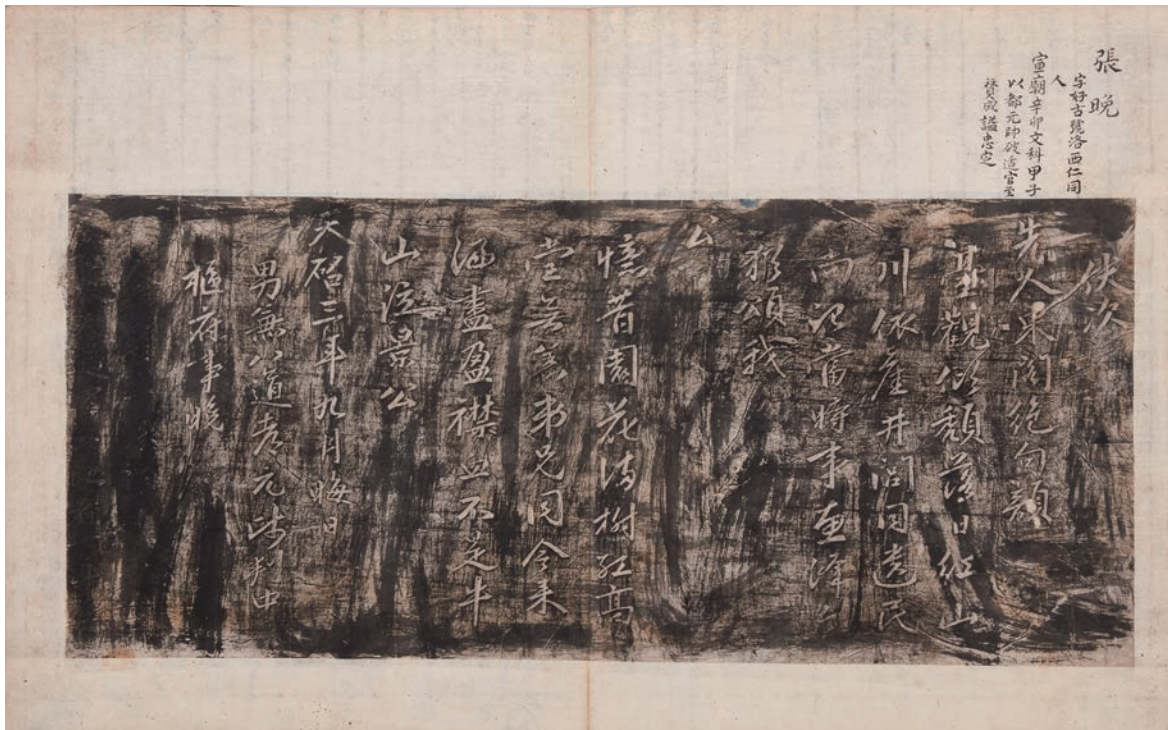 張晚
字好古號洛西仁同
人
宣廟辛卯文科甲子
以都元帥破适官至
贊成謚忠定
伏次
先人東閣絶句韻
觀頹落日紅山
川依舊井閭同遺民
尚記當時事惠澤
猶頌我
公
憶昔園花滿樹紅高
堂無恙弟兄同今來
洒盡盈襟血不是牛
山泣景公
天啓三年九月晦日
男兼八道都元帥判中
樞府事晚